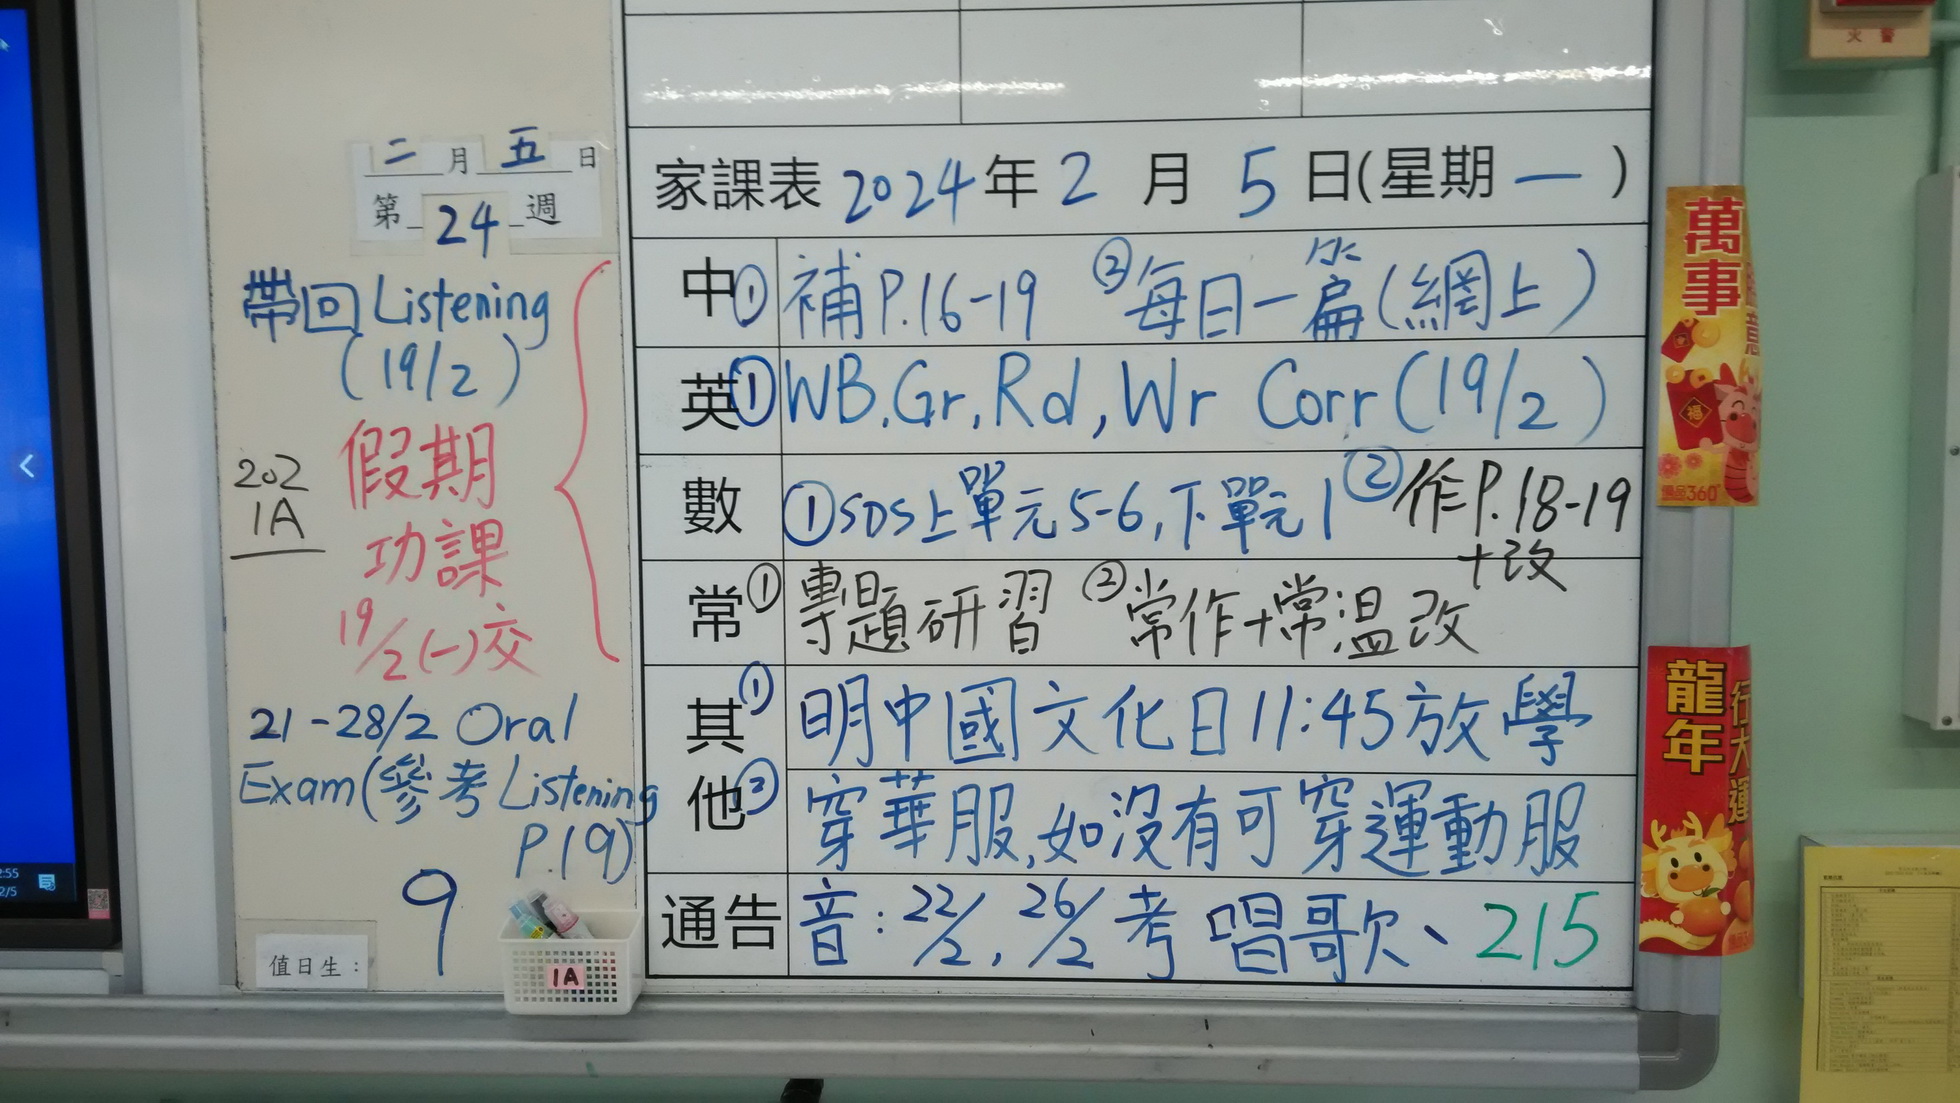 火 警
二月五日
第24週
帶回 Listening
(19/2)
202
1A
假期
功課
19/2(一)交
21-28/2 Oral
Exam(參考 Listening
P.19)
9
值日生：
1A
家課表 2024年2月5日(星期一)
中 ① 補P.16-19 ② 每日一篇(網上)
英 ① WB,Gr,Rd,Wr Corr(19/2)
數 ① SDS上單元5-6,下單元1 ② 作P.18-19
+改
常 ① 專題研習 ② 常作+常溫改
其他 ① 明中國文化日11:45放學
② 穿華服,如沒有可穿運動服
通告 音: 22/2, 26/2考唱歌、215
萬事
福
龍年
行大運
2/5